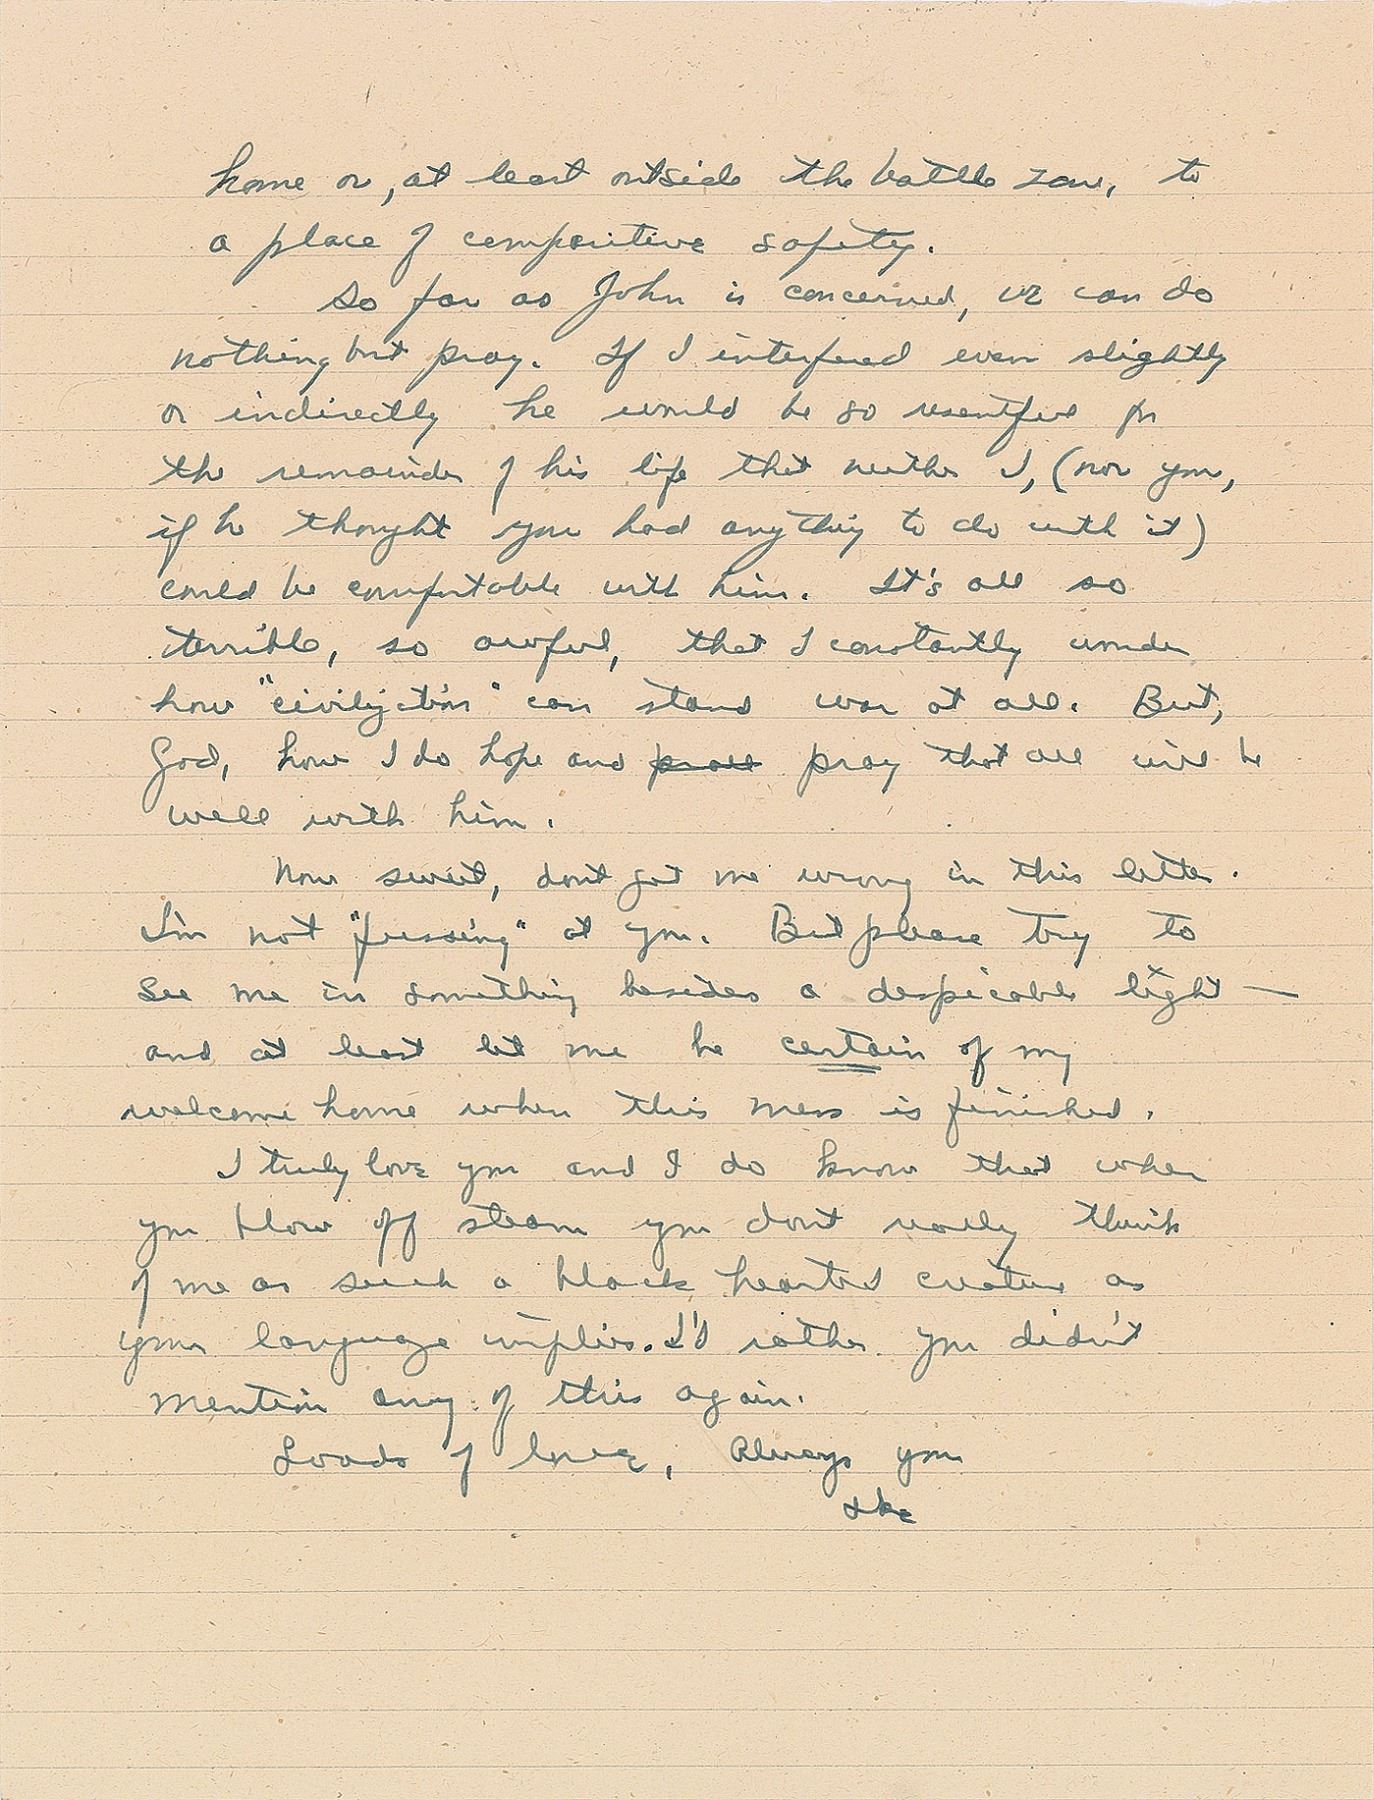 home or, at least outside the battle zone, to
a place of comparitive safety.
So far as John is concerned, we can do
nothing but pray. If I interfered even slightly
or indirectly he would be so resentful for
the remainder of his life that neither I, (nor you,
if he thought you had anything to do with it)
could be comfortable with him. It's all so
terrible, so awful, that I constantly wonder
how "civilization" can stand war at all. But,
God, how I do hope and pray that all will be
well with him.
Now sweet, don't get me wrong in this letter.
I'm not "fussing" at you. But please try to
see me in something besides a despicable light —
and at least let me be certain of my
welcome home when this mess is finished.
I truly love you and I do know that when
you blow off steam you don't really think
of me as such a black hearted creature as
your language implies. I'd rather you didn't
mention any of this again.
Loads of love, Always your
Ike